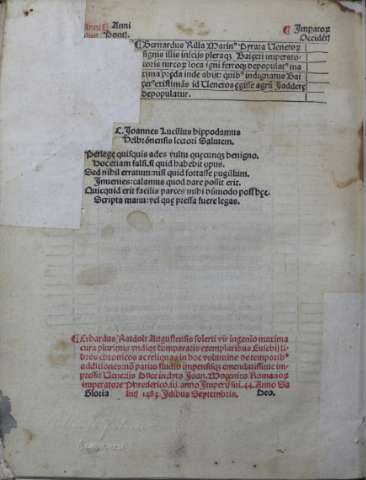 Anni
Impator
Bernardus Rilla Marinꝰ Pyrata Uenetoꝝ
signis illis iniecis pleraqꝫ Baizeti imperato
toris turcoꝝ loca igni ferroqꝫ depopulatꝰ ma
xima p̱da inde abijt: quibꝰ indignatus Bai
zetꝰ existimãs id Uenetos egisse agrũ Jadder
depopulatur.
C. Joannes Lucilius hippodamus
Helbronensis lectori Salutem.
Perlege quisquis ades vultu quecunqꝫ benigno.
Doceriam falsi. si quid habebit opus.
Sed nihil erratum: nisi quid fortasse pugillum.
Inuenies: calamus quod dare possit erit.
Quicquid erit facilis parces mihi dũmodo possꝫ
Scripta manu: vel que pressa fuere legas.
Erhardus Ratdolt Augustensis solerti vir ingenio maxima
cura plurimis vndiqꝫ comparatis exemplaribus Eusebij li
bros chronicos ac reliquas in hoc volumine de temporibꝰ
additiones: nõ paruo studio impensisqꝫ emendatissime im
pressit Uenetijs Duce inclyto Joan. Mocenico Romanoꝝ
imperatore Phrederico .iii. anno Imperij sui .44. Anno Sa
Gloria lutis 1483. Jdibus Septembris. Deo.